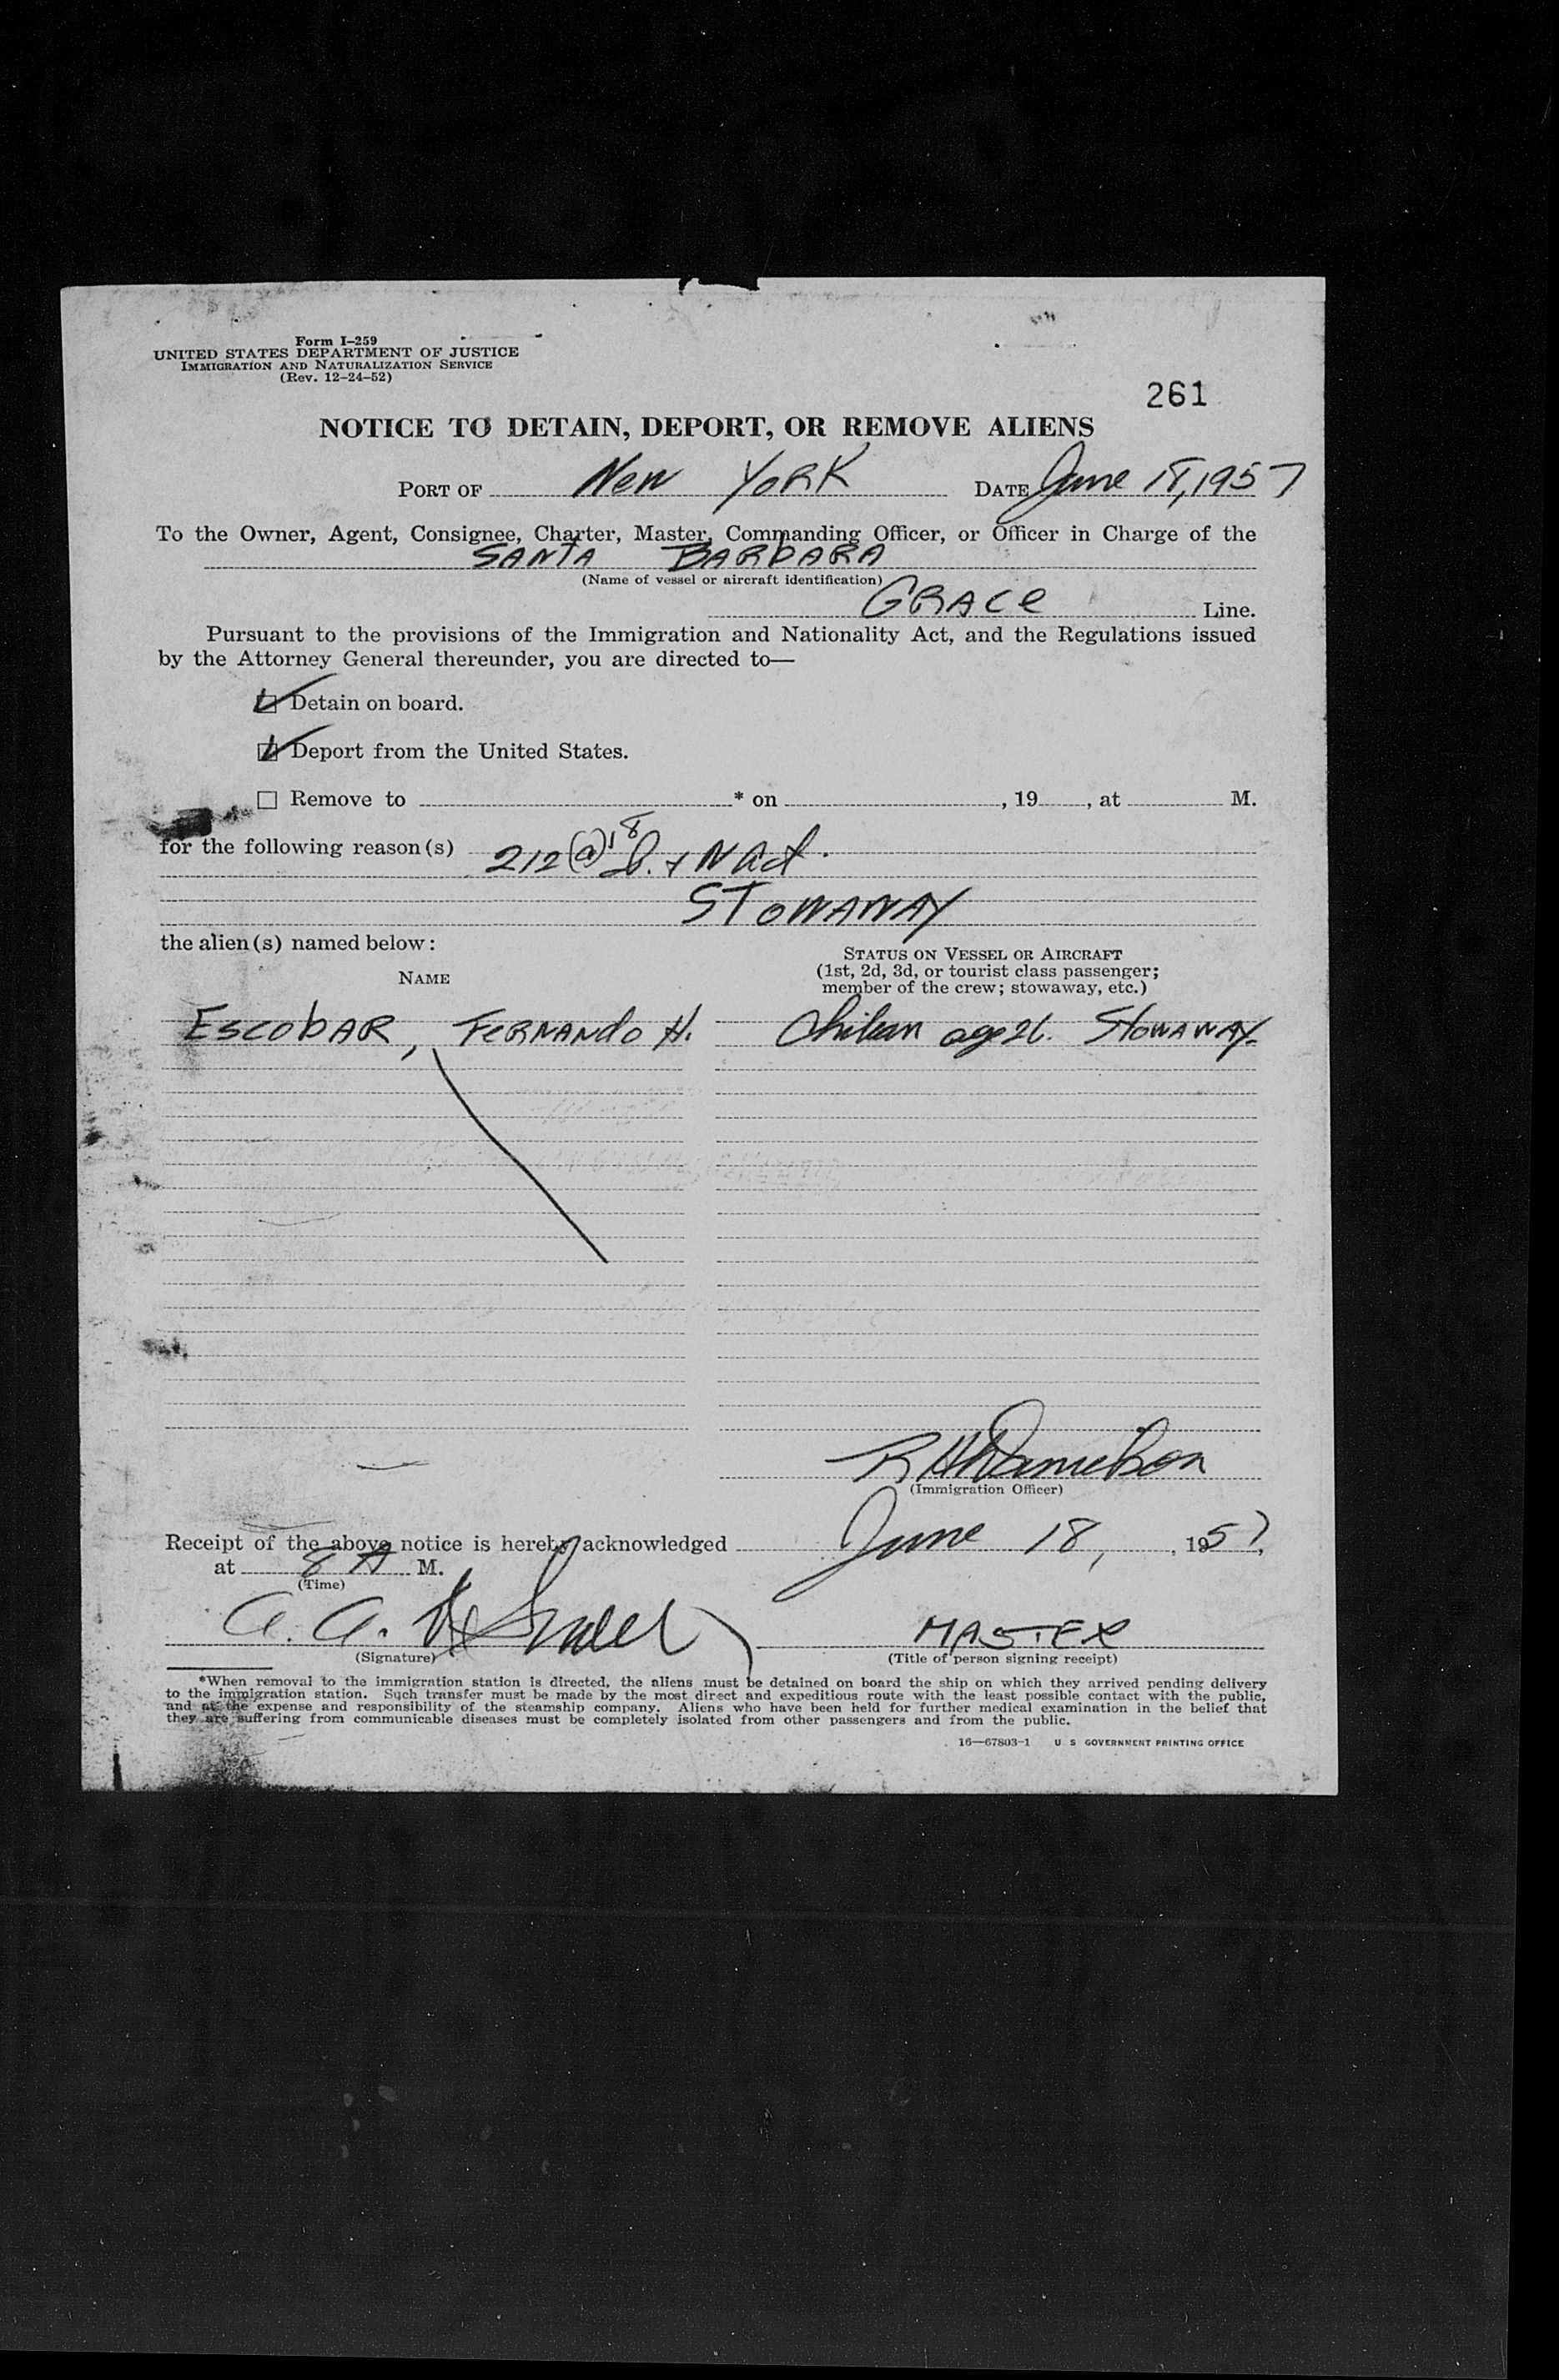 Form I-259
UNITED STATES DEPARTMENT OF JUSTICE
IMMIGRATION AND NATURALIZATION SERVICE
(Rev. 12-24-52)
261
NOTICE TO DETAIN, DEPORT, OR REMOVE ALIENS
PORT OF New York DATE June 18, 1957
To the Owner, Agent, Consignee, Charter, Master, Commanding Officer, or Officer in Charge of the
SANTA BARBARA
(Name of vessel or aircraft identification)
GRACE Line.
Pursuant to the provisions of the Immigration and Nationality Act, and the Regulations issued
by the Attorney General thereunder, you are directed to—
Detain on board.
Deport from the United States.
Remove to * on , 19 , at M.
for the following reason(s) 212(a) 18 I. + N Act.
STOWAWAY
the alien(s) named below:
STATUS ON VESSEL OR AIRCRAFT
NAME
(1st, 2d, 3d, or tourist class passenger;
member of the crew; stowaway, etc.)
ESCOBAR, FERNANDO H. Chilean age 26. STOWAWAY.
(Immigration Officer)
Receipt of the above notice is hereby acknowledged June 18, , 1957,
at 8 A M.
(Time)
A. A. MASTER
(Signature) (Title of person signing receipt)
*When removal to the immigration station is directed, the aliens must be detained on board the ship on which they arrived pending delivery
to the immigration station. Such transfer must be made by the most direct and expeditious route with the least possible contact with the public,
and at the expense and responsibility of the steamship company. Aliens who have been held for further medical examination in the belief that
they are suffering from communicable diseases must be completely isolated from other passengers and from the public.
16—67803-1 U S GOVERNMENT PRINTING OFFICE